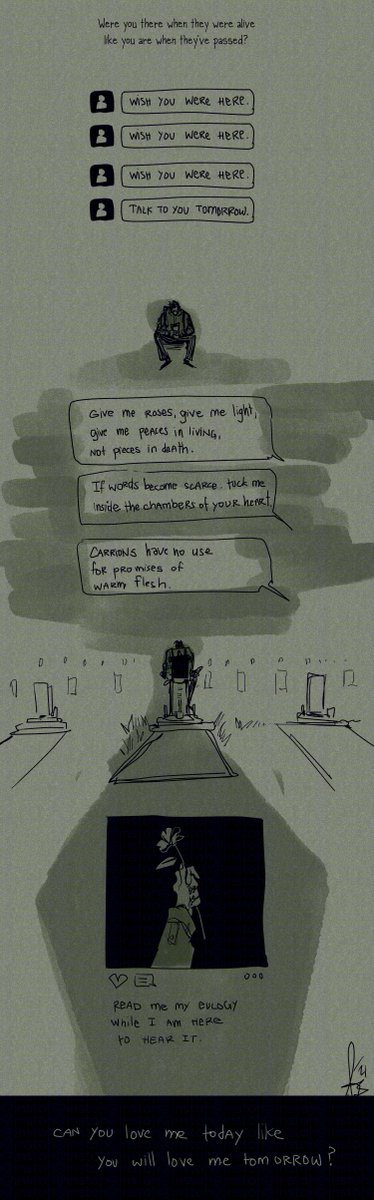 Were you there when they were alive
like you are when they've passed?
WISH YOU WERE HERE.
WISH YOU WERE HERE.
WISH YOU WERE HERE.
TALK TO YOU TOMORROW.
Give me ROSES, give me light,
give me peaces in living,
not pieces in death.
If words become scarce. tuck me
inside the chambers of your heart
CARRIONS have no use
for promises of
warm flesh.
READ me my EULOGY
while I am HERE
to HEAR IT.
CAN you love me today like
you will love me tomORROW?